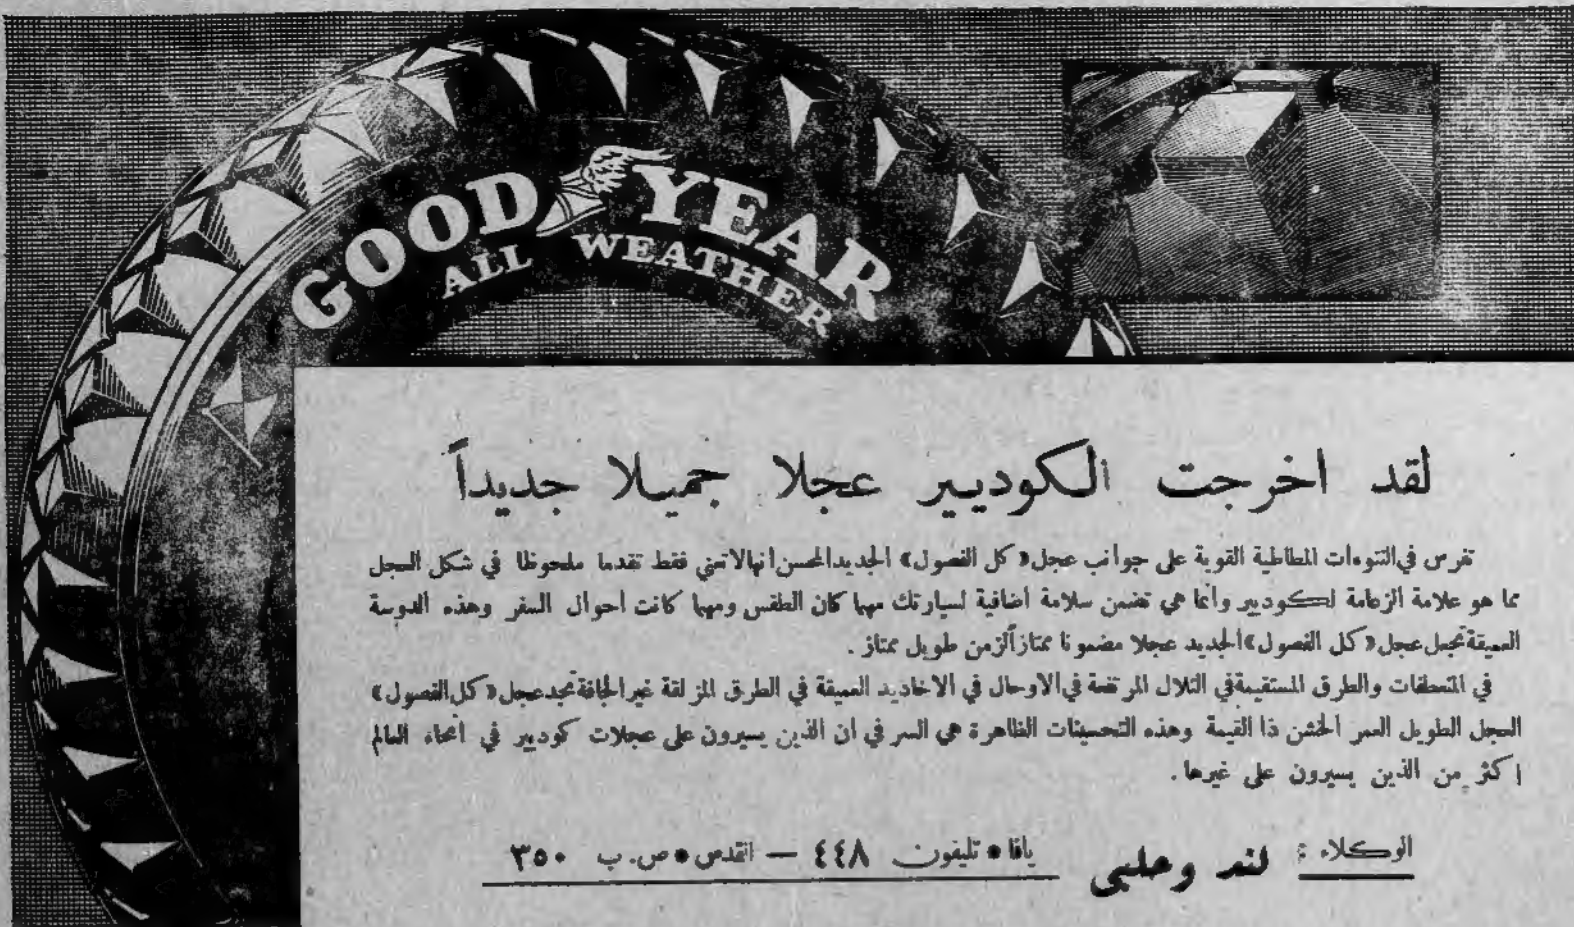 GOOD YEAR
ALL WEATHER
لقد اخرجت الكوديير عجلا جميلا جديداً
تفرس في النتوءات المطاطية القوية على جوانب عجل «كل الفصول» الجديد المحسن انها لا تعني فقط تقدما ملحوظا في شكل العجل
مما هو علامة الزعامة لكوديير وانما هي تضمن سلامة اضافية لسيارتك مهما كان الطقس ومهما كانت احوال السفر وهذه الدوسة
العميقة تجعل عجل «كل الفصول» الجديد عجلا مضمونا ممتازاً لزمن طويل ممتاز .
في المنعطفات والطرق المستقيمة في التلال المرتفعة في الاوحال في الاخاديد العميقة في الطرق المزلقة غير الجافة تجد عجل «كل الفصول»
العجل الطويل العمر الخشن ذا القيمة وهذه التحسينات الظاهرة هي السر في ان الذين يسيرون على عجلات كوديير في انحاء العالم
اكثر من الذين يسيرون على غيرها .
الوكلاء : لند وحلبي يافا • تليفون ٤٤٨ — القدس • ص. ب ٣٥٠